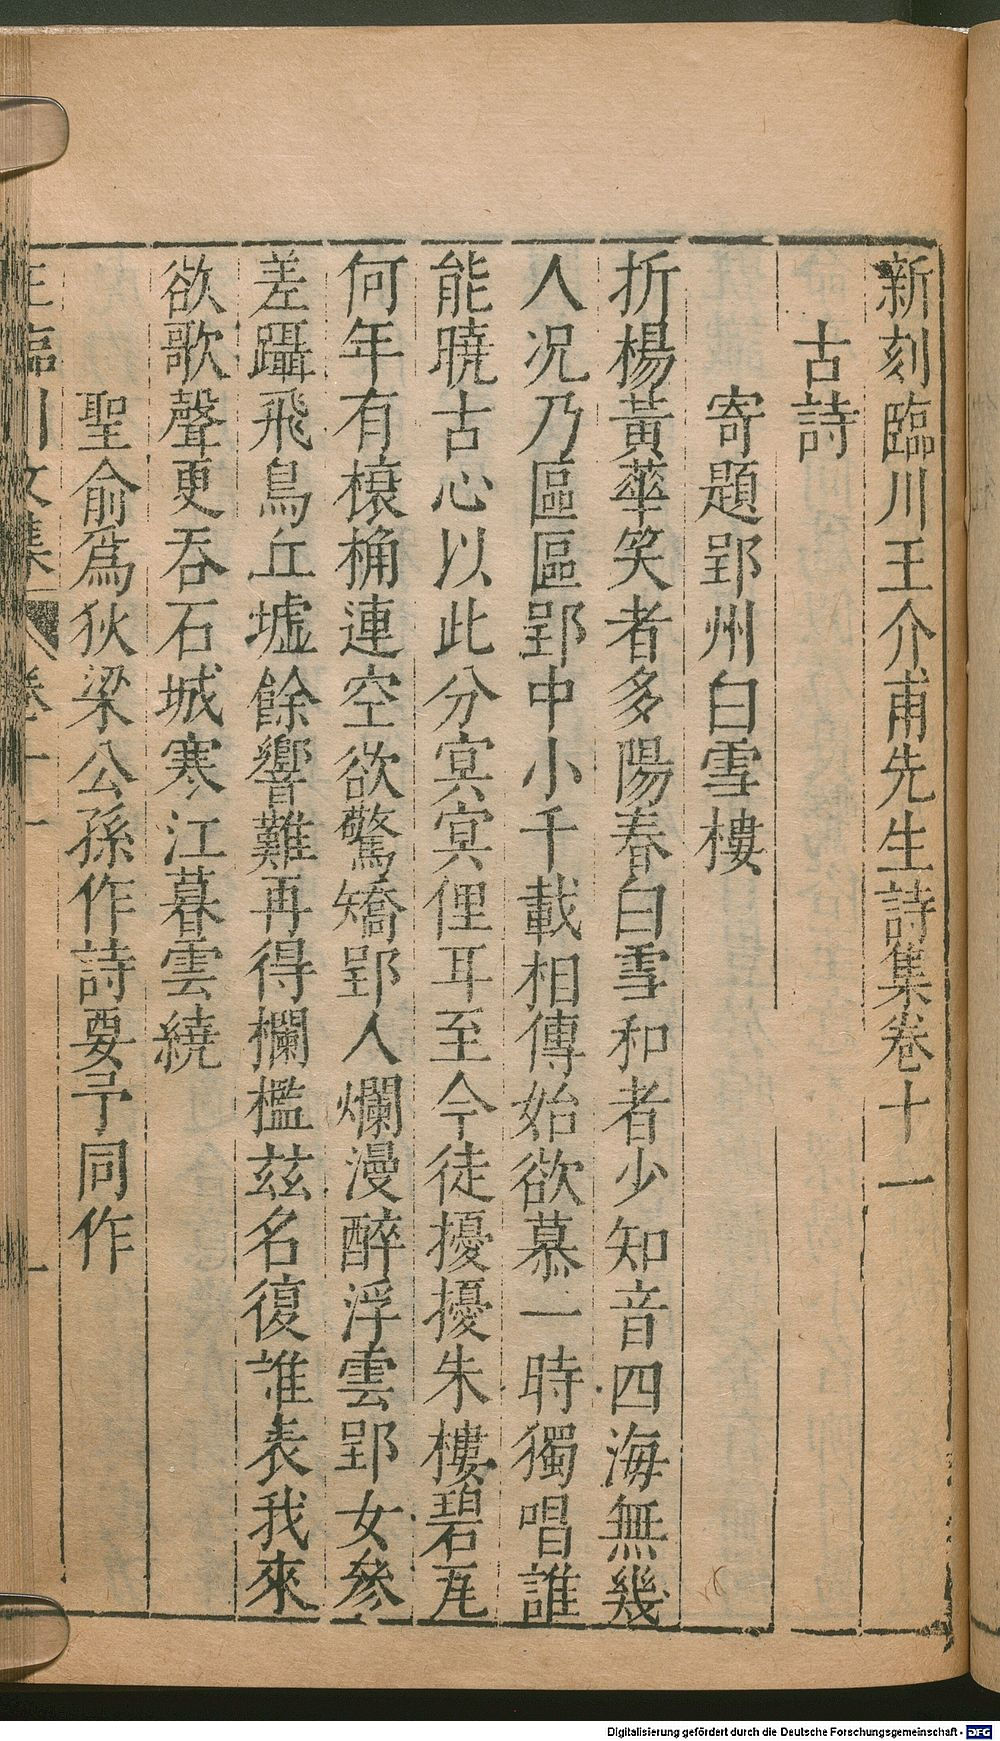 新刻臨川王介甫先生詩集卷十一
古詩
寄題郢州白雪樓
折楊黃華笑者多陽春白雪和者少知音四海無幾
人况乃區區郢中小千載相傳始欲慕一時獨唱誰
能曉古心以此分冥冥俚耳至今徒擾擾朱樓碧瓦
何年有榱桷連空欲驚矯郢人爛漫醉浮雲郢女參
差躡飛鳥丘墟餘響難再得欄檻兹名復誰表我來
欲歌聲更吞石城寒江暮雲繞
聖俞爲狄梁公孫作詩要予同作
王臨川文集 卷十一 一
Digitalisierung gefördert durch die Deutsche Forschungsgemeinschaft - DFG